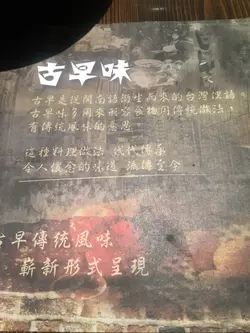 古早味
古早是從閩南語衍生而來的台灣漢語。
古早味多用來形容食物用傳統做法，
有傳統風味的意思。
這種料理做法 代代傳承
令人懷念的味道 流傳至今
古早傳統風味
嶄新形式呈現